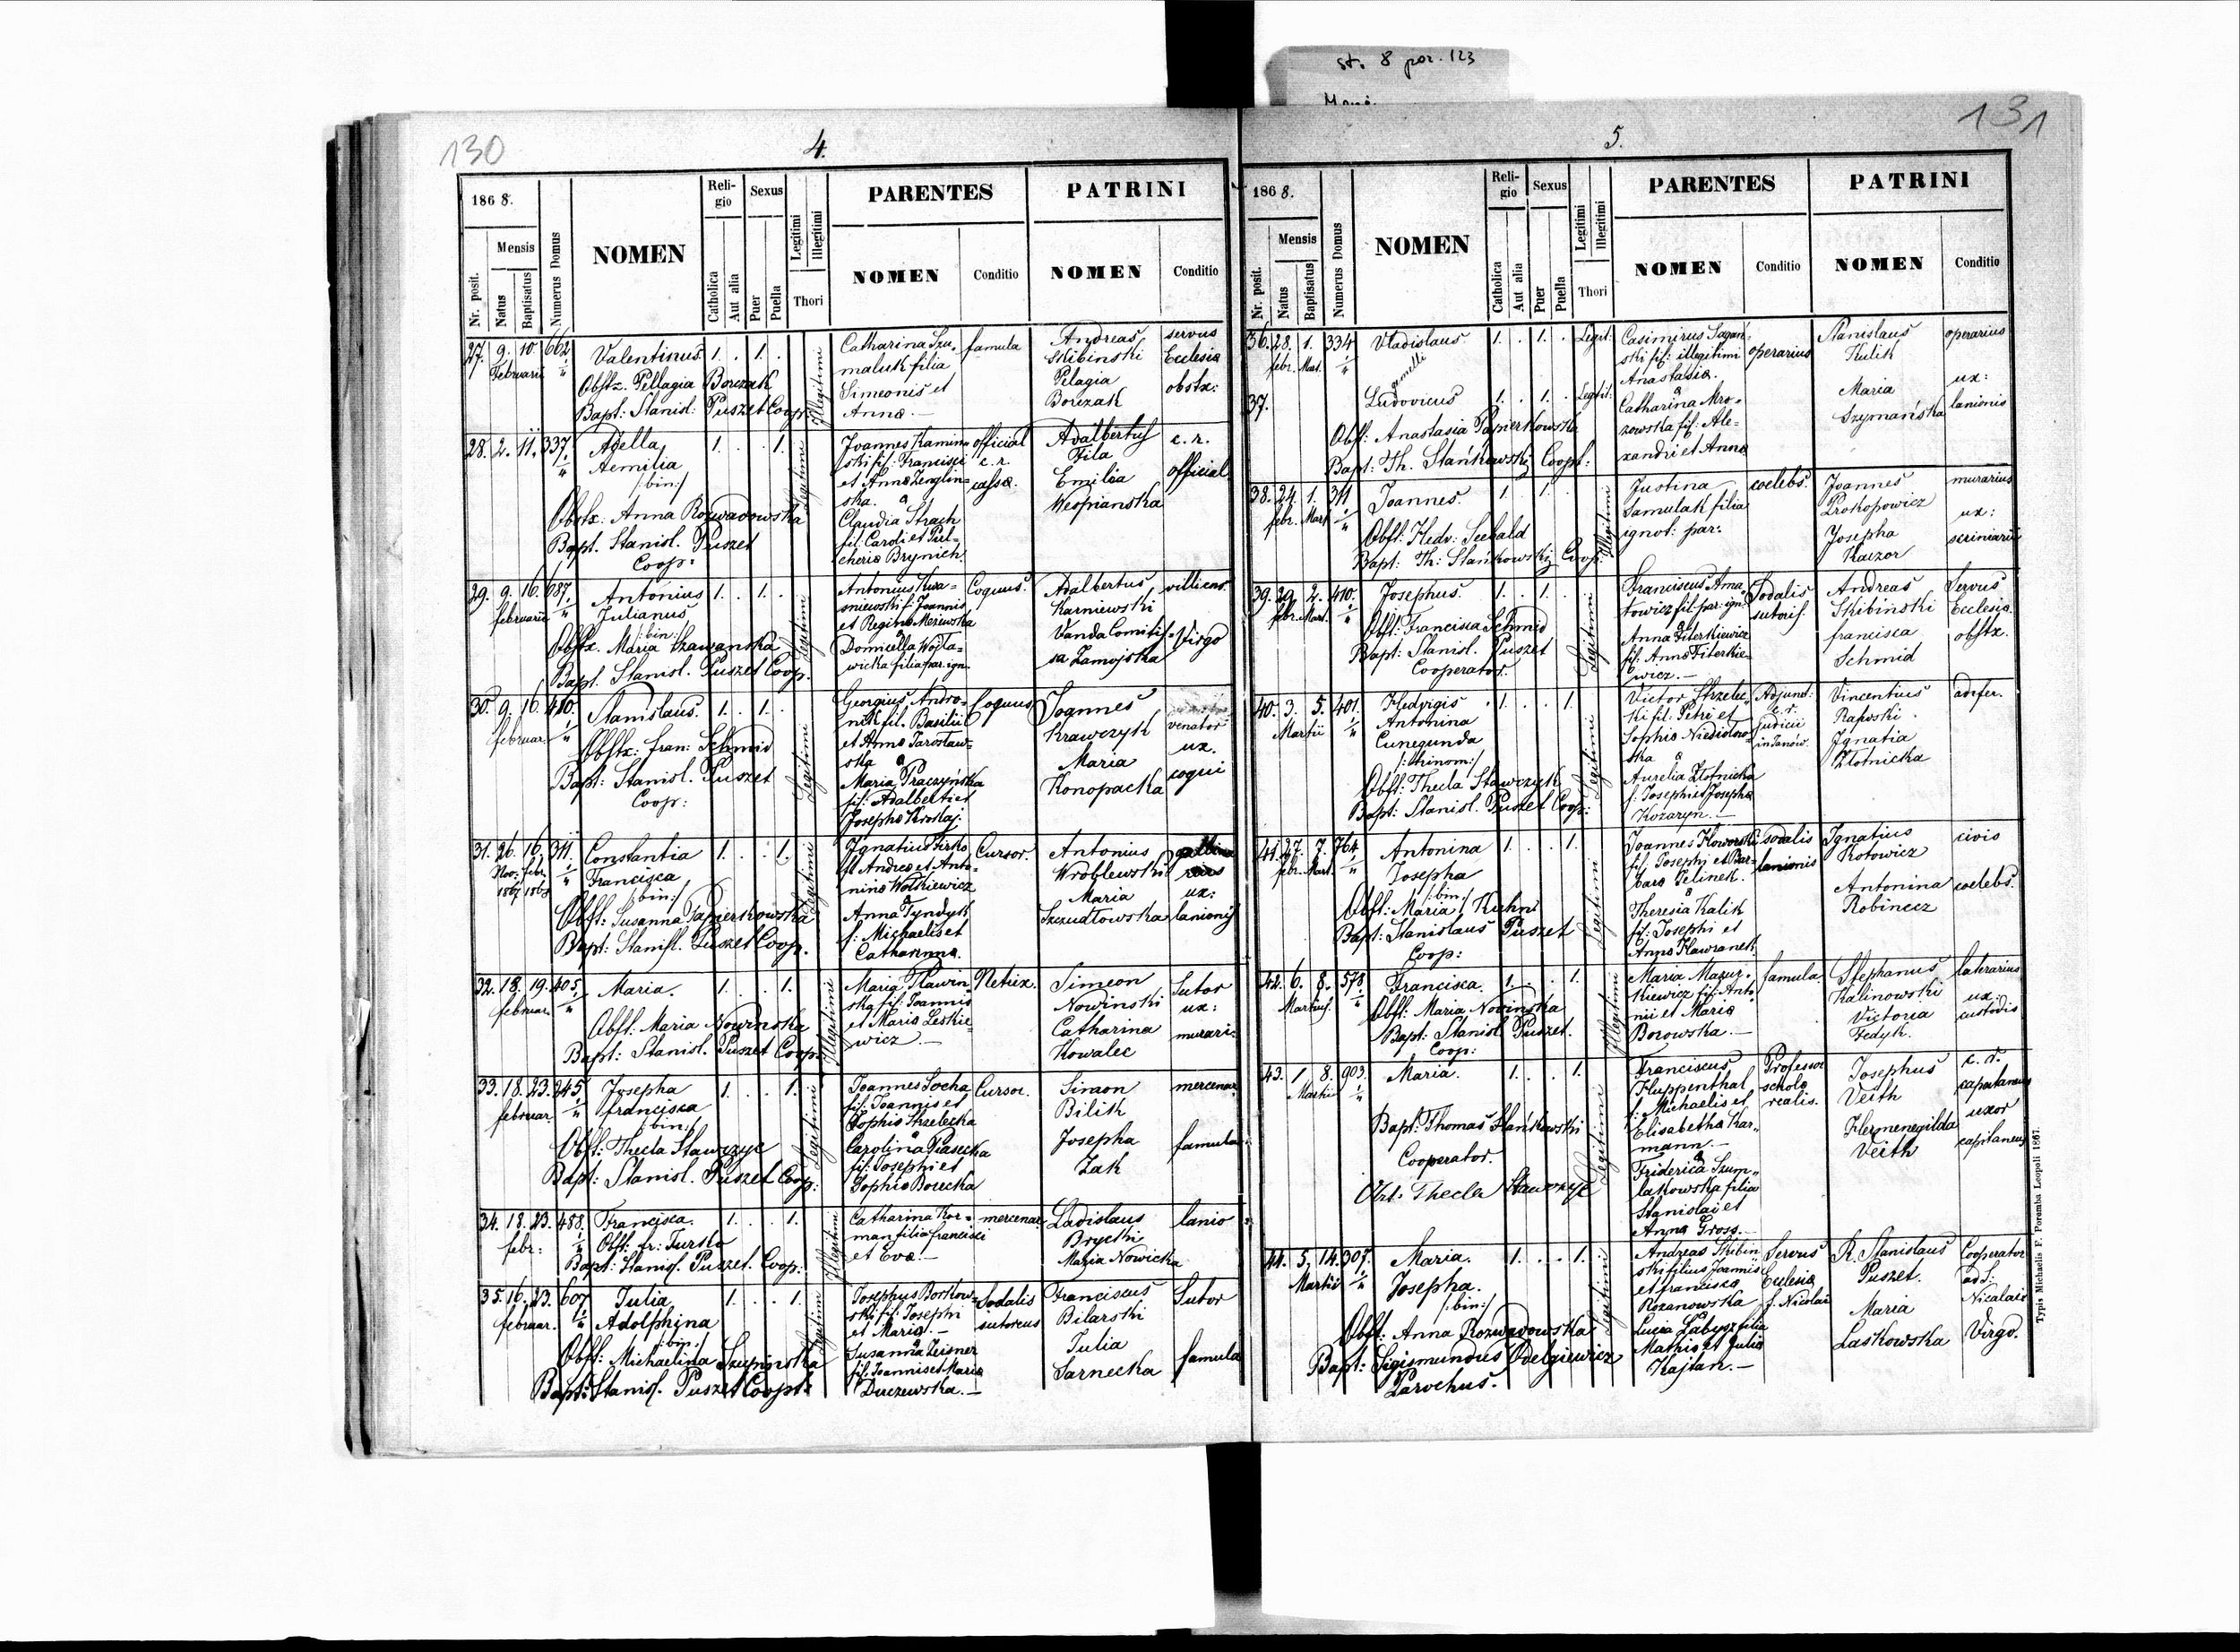 st. 8 por. 123
130
4.
1868.
Nr. posit.
Mensis
Natus
Baptisatus
Numerus Domus
NOMEN
Religio
Catholica
Aut alia
Sexus
Puer
Puella
Legitimi
Illegitimi
Thori
PARENTES
NOMEN
Conditio
PATRINI
NOMEN
Conditio
27. 9. 10. 662
Februarii
Valentinus 1. 1.
Obstx. Pellagia Borczak
Bapt: Stanisl: Puszet Coop:
Illegitimi
Catharina Szu-
maluk filia
Simeonis et
Anna. —
famula
Andreas
Skibinski
Pelagia
Borczak
servus
Ecclesia
obstx:
28. 2. 11. 337.
Adella
Aemilia
/:bin:/
1. 1.
Obstx: Anna Rozwadowska
Bapt. Stanisl. Puszet
Coop:
Legitimi
Joannes Kamin-
ski fil: Francisci
et Anna
ska.
a
Claudia Strach
fil: Caroli et Pul-
cheria Brynich.
official
c. r.
cassa.
Adalbertus
Fila
Emilia
Wespianska
c. r.
official
29. 9. 16. 687.
februarii
Antonius
Julianus
/:bin:/
1. 1.
Obstx. Maria Szawanska
Bapt. Stanisl. Puszet Coop.
Legitimi
Antonius Kwa-
sniewski f. Joannis
et Regina
Domicella Wojta-
wicka filia par. ign.
Coquus.
Adalbertus
Karniewski
Vanda Comitis-
sa Zamojska
villicus.
Virgo
30. 9. 16. 410.
februar.
Stanislaus. 1. 1.
Obstx: fran: Schmid
Bapt: Stanisl. Puszet
Coop:
Legitimi
Georgius Andro-
nik fil. Basilii
et Anna Jarosław-
ska a
Maria Praczyńska
fil: Adalberti et
Josepha Kroskaj.
Coquus
Joannes
Krawczyk
Maria
Konopacka
venator
ux.
coqui
31. 26. 16. 311.
Nov: febr.
1867 1868
Constantia
Francisca
/:bin:/
1. 1.
Obst: Susanna Papierkowska
Bapt: Stanisl. Puszet Coop.
Legitimi
Ignatius Firko
fil Andrea et Anto-
nina Wołkiewicz
a
Anna Tyndyk
f: Michaelis et
Catharina.
Cursor.
Antonius
Wroblewski
Maria
Szczudłowska
ux:
lanionis
32. 18. 19. 405.
februar.
Maria. 1. 1.
Obst: Maria Nowinska
Bapt: Stanisl. Puszet Coop.
Illegitimi
Maria Pławin-
ska fil: Joannis
et Maria Leskie-
wicz. —
Netrix.
Simeon
Nowinski
Catharina
Kowalec
Sutor
ux:
murari:
33. 18. 23. 245.
februar.
Josepha
francisca
/:bin:/
1. 1.
Obst: Thecla Stawczyc
Bapt: Stanisl. Puszet Coop:
Legitimi
Joannes Socha
fil. Joannis et
Sophia Strzelecka
a
Carolina Piasecka
fil: Josephi et
Sophia Borecka
Cursor.
Simon
Bilik
Josepha
Zak
mercenar.
famula
34. 18. 23. 488.
febr:
Francisca. 1. 1.
Obst: fr: Turslo
Bapt: Stanisl. Puszet. Coop:
Illegitimi
Catharina Kor-
man filia francisci
et Eva. —
mercenar.
Ladislaus
Brycki
Maria Nowicka
lanio
35. 16. 23. 607
februar.
Julia
Adolphina
/:bin:/
1. 1.
Obst: Michaelina Szuminska
Bapt: Stanisl. Puszet Coopt:
Legitimi
Josephus Borkow-
ski fil: Josephi
et Maria. —
a
Susanna Leisner
fil: Joannis et Maria
Duczewska. —
Sodalis
sutoreus
Franciscus
Bilarski
Julia
Sarnecka
Sutor
famula
131
5.
1868.
Nr. posit.
Mensis
Natus
Baptisatus
Numerus Domus
NOMEN
Religio
Catholica
Aut alia
Sexus
Puer
Puella
Legitimi
Illegitimi
Thori
PARENTES
NOMEN
Conditio
PATRINI
NOMEN
Conditio
36. 28. 1. 334
febr. Mart.
Vladislaus 1. 1. Legit:
gemelli
37. Ludovicus 1. 1. Legit:
Obst: Anastasia Papierkowska
Bapt: Th. Stańkowski Coopt:
Casimirus Sagan-
ski fil: illegitimi
Anastasia.
a
Catharina Mro-
zowska fil: Ale-
xandri et Anna
operarius
Stanislaus
Kulik
Maria
Szymańska
operarius
ux:
lanionis
38. 24. 1. 311
febr. Mart
Joannes. 1. 1.
Obst: Hedv: Seebald
Bapt: Th: Stańkowski Coop:
Illegitimi
Justina
Samulak filia
ignot: par:
coelebs.
Joannes
Prokopowicz
Josepha
Kaczor
murarius
ux:
scriniarii
39. 29. 2. 410.
febr. Mart.
Josephus. 1. 1.
Obst: Francisca Schmid
Bapt: Stanisl. Puszet
Cooperator.
Legitimi
Franciscus Ama-
towicz fil. par. ign.
a
Anna Fiterkiewicz
fil: Anna Fiterkie-
wicz. —
Sodalis
sutoris.
Andreas
Skibinski
francisca
Schmid
Servus
Ecclesia.
obstx.
40. 3. 5. 401.
Martii
Hedvigis
Antonina
Cunegunda
/:trinom:/
1. 1.
Obst: Thecla Stawczyk
Bapt: Stanisl. Puszet Coop:
Legitimi
Victor Strzelec-
ki fil: Petri et
Sophia
ska a
Aurelia Złotnicka
f: Josephi et Josepha
Kozaryn. —
Adjunct:
c. r.
judicii
in Janów.
Vincentius
Rapski
Ignatia
Złotnicka
41. 27. 7. 764.
febr. Mart.
Antonina
Josepha
/:bin:/
1. 1.
Obst: Maria Kuhn
Bapt: Stanislaus Puszet
Coop:
Legitimi
Joannes Kloworski
fil. Josephi et Bar-
bara Jelinek.
a
Theresia Kalik
fil: Josephi et
Anna Hawranek.
sodalis
lanionis
Ignatius
Kotowicz
Antonina
Robinecz
civis
coelebs.
42. 6. 8. 578.
Martius.
Francisca. 1. 1.
Obst: Maria Nowinska
Bapt: Stanisl Puszet.
Coop:
Illegitimi
Maria Mazur-
kiewicz fil: Anto-
nii et Maria
Borowska. —
famula
Stephanus
Kalinowski
Victoria
Fedyk.
laterarius
ux:
custodis
43. 1 8. 903.
Martii
Maria. 1. 1.
Bapt: Thomas Stańkowski
Cooperator.
Obst: Thecla Stawczyk
Legitimi
Franciscus
Kluppenthal
f: Michaelis et
Elisabetha Kar-
mann. —
a
Friderica Szum-
lakowska filia
Stanislai et
Anna Gross. —
Professor
schola
realis.
Josephus
Veith
Hermenegilda
Veith
c. r.
capitaneus
uxor
capitanei
44. 5. 14. 307.
Martii
Maria.
Josepha.
/:bin:/
1. 1.
Obst: Anna Rozwadowska
Bapt: Sigismundus Odelgiewicz
Parochus.
Legitimi
Andreas Skibin-
ski filius Joannis
et francisca
Rozanowska
Lucia Łabysz filia
Mathia et Julia
Kajtan. —
Servus
Ecclesia
s. Nicolai
R. Stanislaus
Puszet.
Maria
Laskowska
Cooperator
ad S.
Nicalais
Virgo.
Typis Michaelis F. Poremba Leopoli 1867.